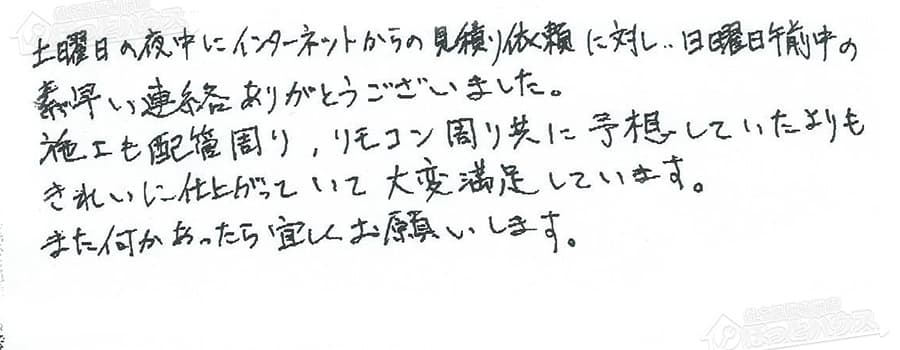 土曜日の夜中にインターネットからの見積り依頼に対し、日曜日午前中の
素早い連絡ありがとうございました。
施工も配管周り，リモコン周り共に予想していたよりも
きれいに仕上がっていて大変満足しています。
また何かあったら宜しくお願いします。